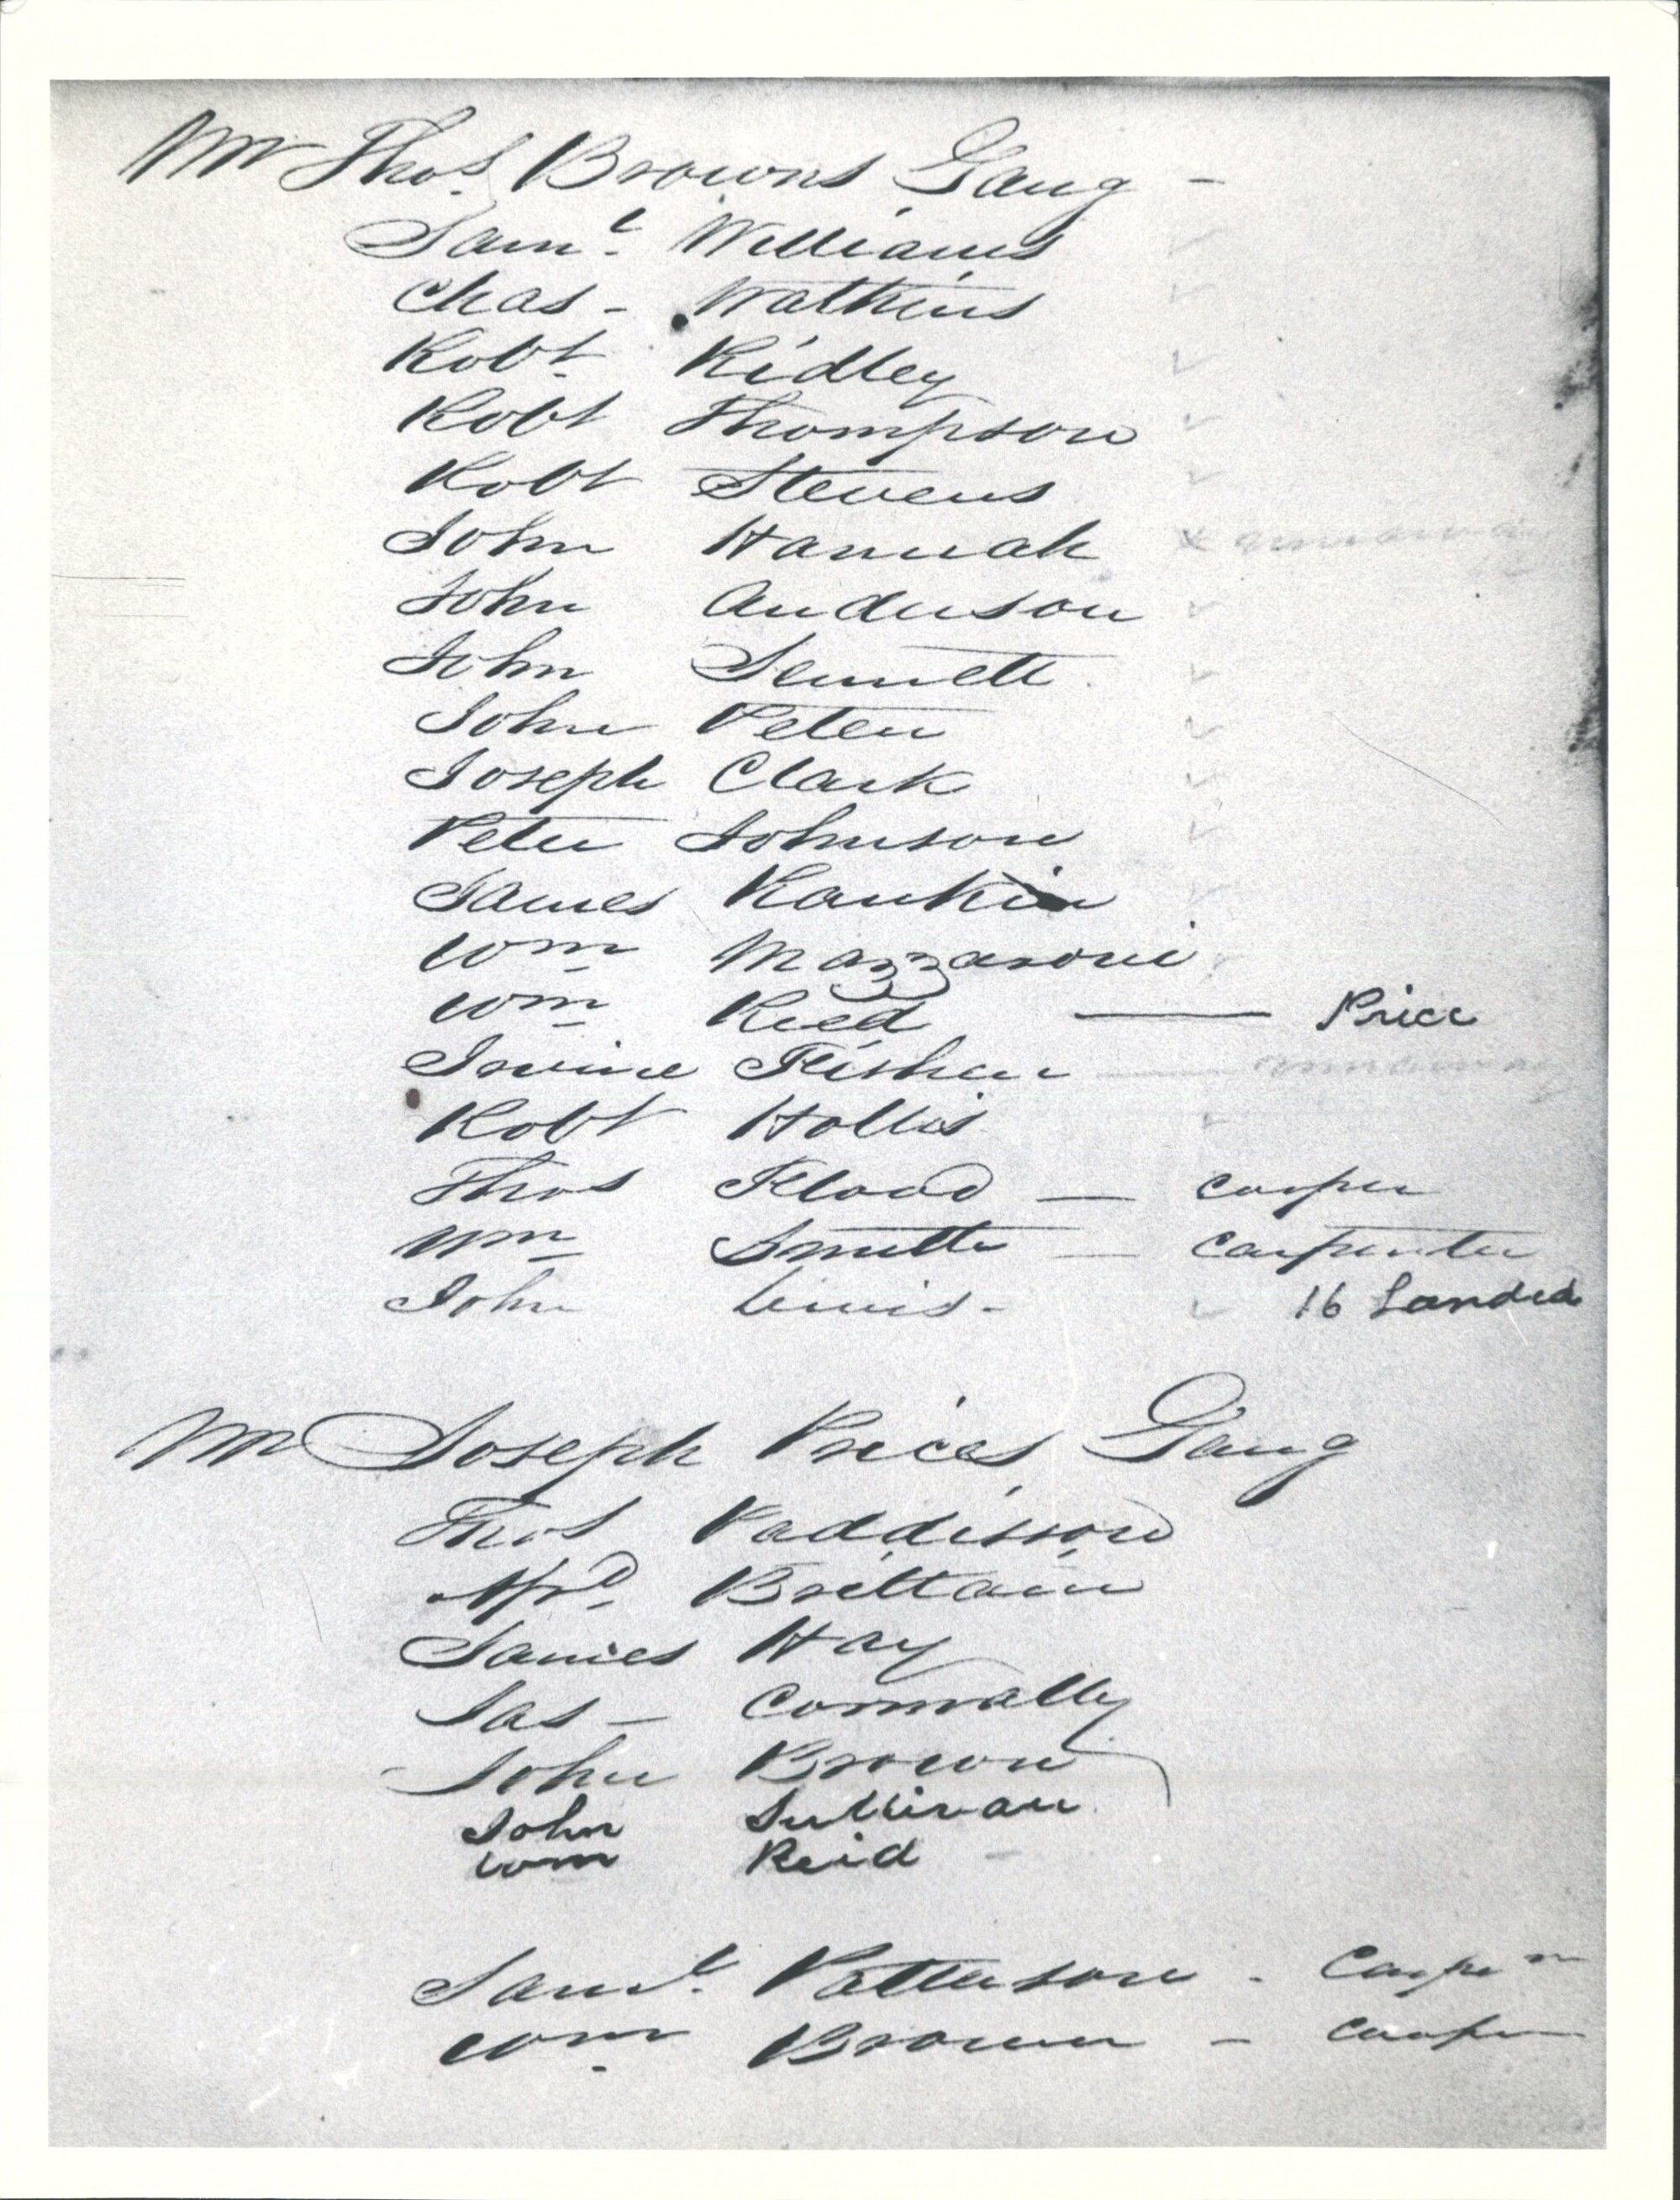 Mr Thos. Browns Gang -
Saml. Williams
Chas - Watkins
Robt. Ridley
Robt Thompson
Robt Stevens
John Hannah x
John Anderson
John Sennett
John Peter
Joseph Clark
Peter Johnson
James Rankin
Wm Mazzaroni
Wm Reed — Price
Irvine Fisher
Robt Hollis
Thos Flood — Cooper
Wm Smith — Carpenter
John Lewis - 16 Landed
Mr Joseph Price's Gang
Thos Paddison
Alfrd. Brittain
James Hay
Jas - Connally
John Brown
John Sullivan
Wm Reid
Saml. Patterson - Carpen
Wm Brown - Cooper